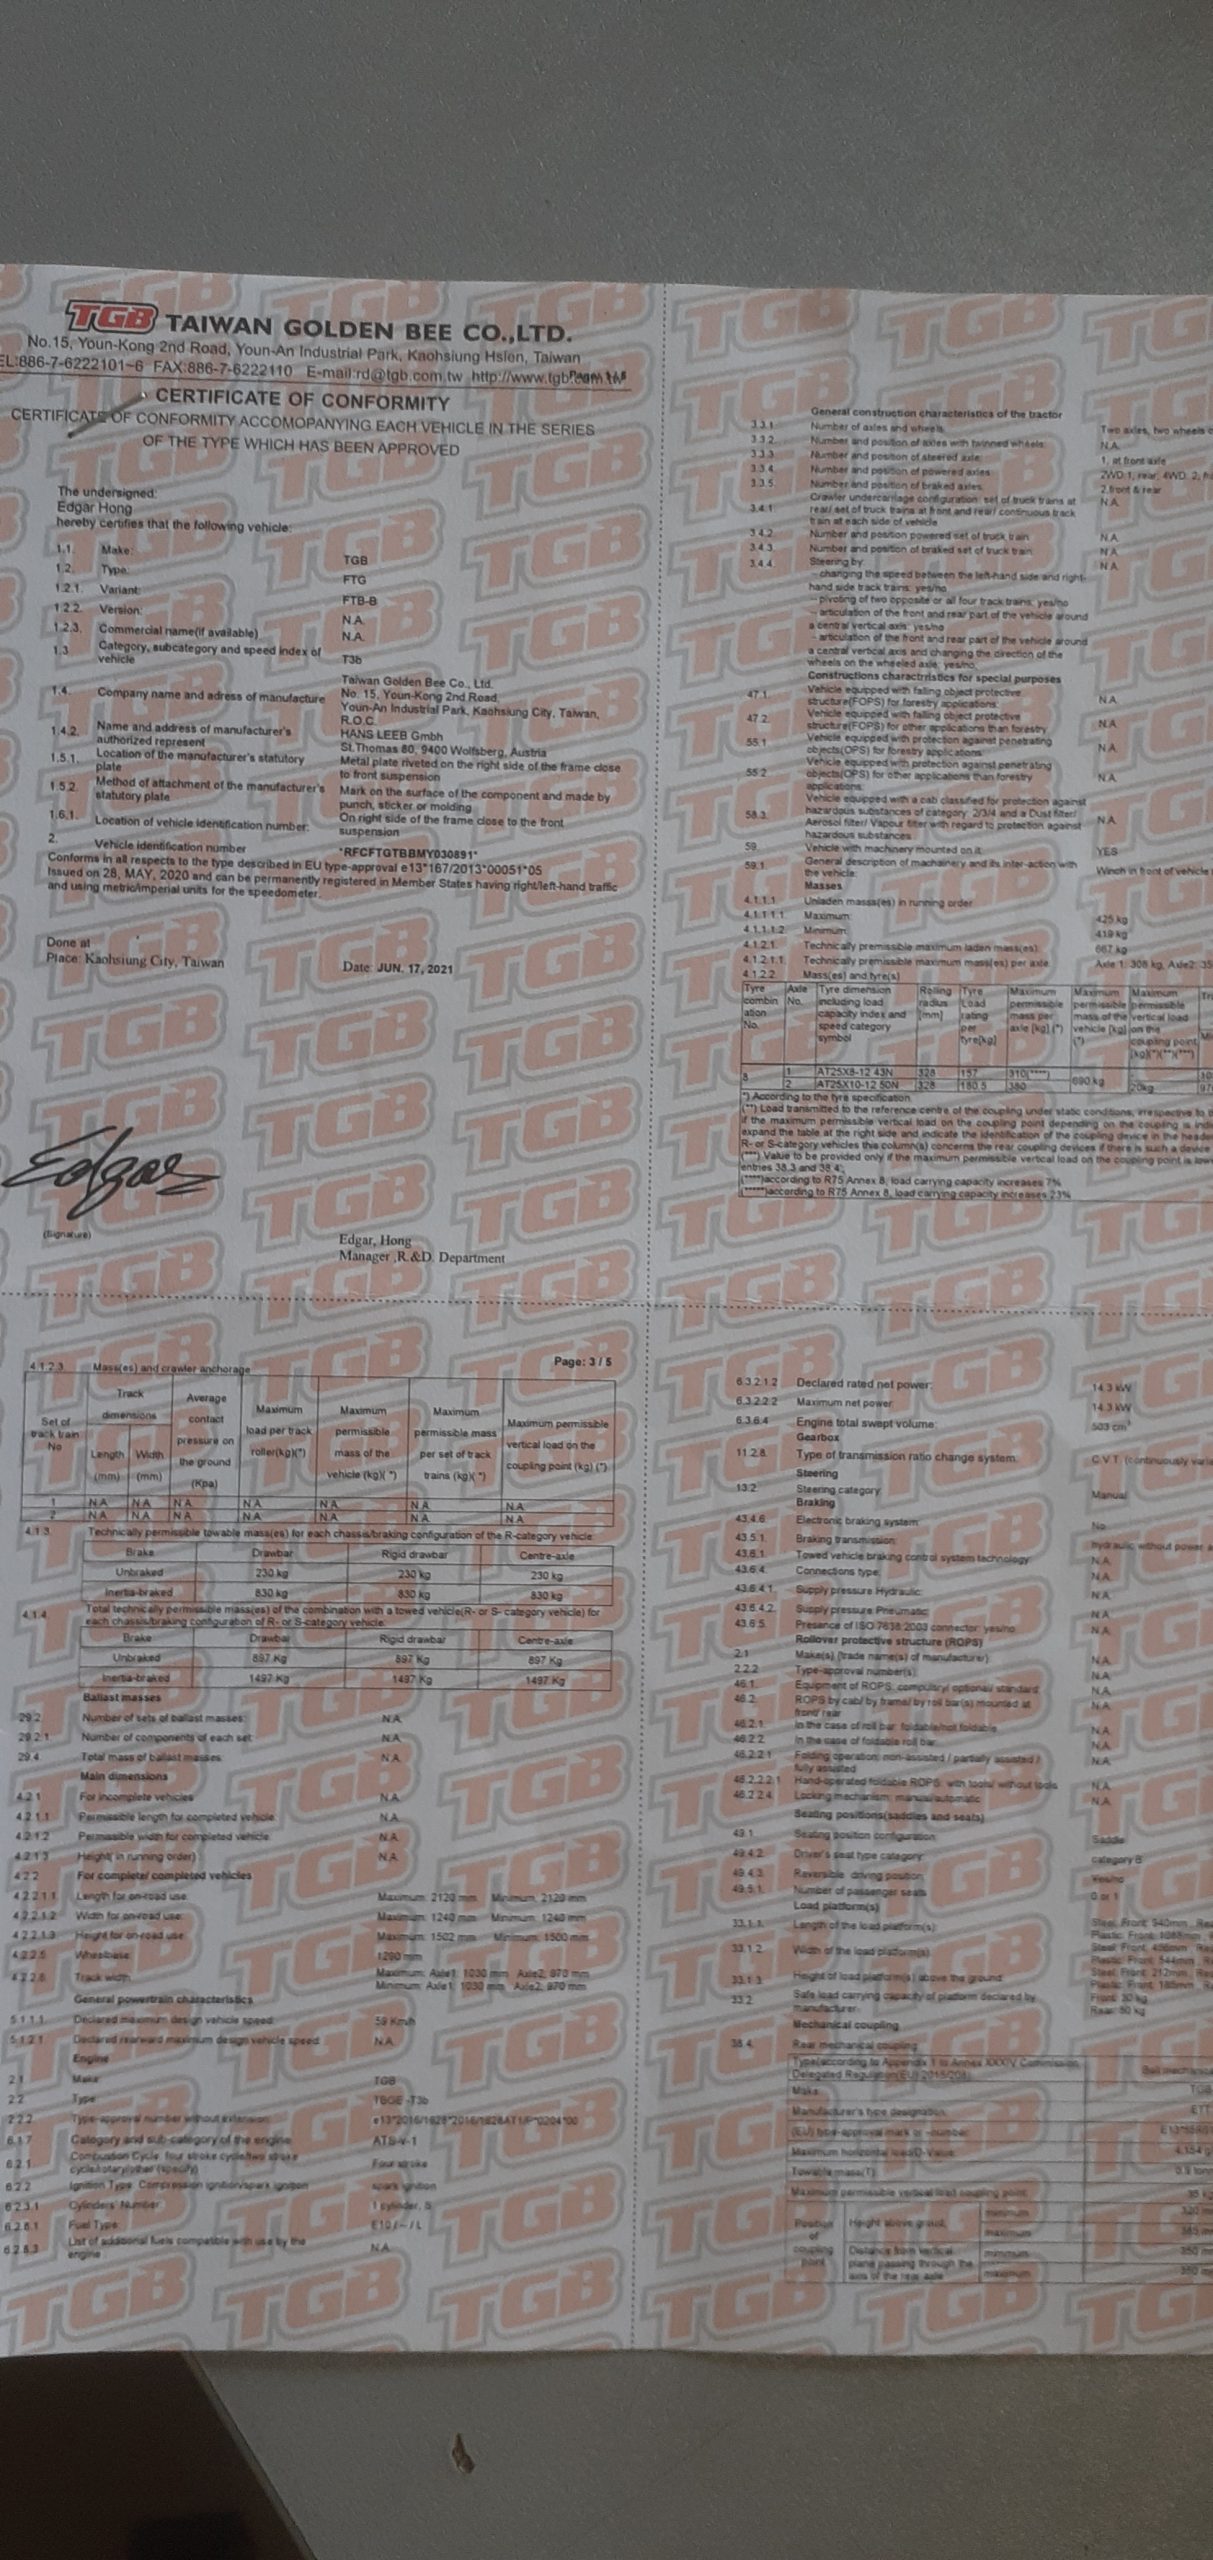 TGB TAIWAN GOLDEN BEE CO.,LTD.
No.15, Youn-Kong 2nd Road, Youn-An Industrial Park, Kaohsiung Hsien, Taiwan
EL:886-7-6222101~6 FAX:886-7-6222110 E-mail:rd@tgb.com.tw http://www.tgb.com.tw
CERTIFICATE OF CONFORMITY
CERTIFICATE OF CONFORMITY ACCOMOPANYING EACH VEHICLE IN THE SERIES
OF THE TYPE WHICH HAS BEEN APPROVED
The undersigned:
Edgar Hong
hereby certifies that the following vehicle:
1.1. Make: TGB
1.2. Type: FTG
1.2.1. Variant: FTB-B
1.2.2. Version: N.A.
1.2.3. Commercial name(if available) N.A.
1.3. Category, subcategory and speed index of
vehicle T3b
1.4. Company name and adress of manufacture Taiwan Golden Bee Co., Ltd.
No. 15, Youn-Kong 2nd Road,
Youn-An Industrial Park, Kaohsiung City, Taiwan,
R.O.C.
1.4.2. Name and address of manufacturer's
authorized represent HANS LEEB Gmbh
St.Thomas 80, 9400 Wolfsberg, Austria
1.5.1. Location of the manufacturer's statutory
plate Metal plate riveted on the right side of the frame close
to front suspension
1.5.2. Method of attachment of the manufacturer's
statutory plate Mark on the surface of the component and made by
punch, sticker or molding
1.6.1. Location of vehicle identification number: On right side of the frame close to the front
suspension
2. Vehicle identification number *RFCFTGTBBMY030891*
Conforms in all respects to the type described in EU type-approval e13*167/2013*00051*05
Issued on 28, MAY, 2020 and can be permanently registered in Member States having right/left-hand traffic
and using metric/imperial units for the speedometer.
Done at
Place: Kaohsiung City, Taiwan Date: JUN. 17, 2021
Edgar
(Signature)
Edgar, Hong
Manager ,R.&D. Department
General construction characteristics of the tractor
3.3.1. Number of axles and wheels: Two axles, two wheels
3.3.2. Number and position of axles with twinned wheels: N.A.
3.3.3. Number and position of steered axle: 1, at front axle
3.3.4. Number and position of powered axles: 2WD:1, rear; 4WD: 2,
3.3.5. Number and position of braked axles: 2,front & rear
3.4.1. Crawler undercarriage configuration: set of truck trains at N.A.
rear/ set of truck trains at front and rear/ continuous track
train at each side of vehicle
3.4.2. Number and position powered set of truck train N.A.
3.4.3. Number and position of braked set of truck train: N.A.
3.4.4. Steering by: N.A.
– changing the speed between the left-hand side and right-
hand side track trains: yes/no
– pivoting of two opposite or all four track trains: yes/no
– articulation of the front and rear part of the vehicle around
a central vertical axis: yes/no
– articulation of the front and rear part of the vehicle around
a central vertical axis and changing the direction of the
wheels on the wheeled axle: yes/no
Constructions charactrristics for special purposes
47.1. Vehicle equipped with falling object protective
structure(FOPS) for forestry applications: N.A.
47.2. Vehicle equipped with falling object protective
structure(FOPS) for other applications than forestry N.A.
55.1 Vehicle equipped with protection against penetrating
objects(OPS) for forestry applications: N.A.
55.2 Vehicle equipped with protection against penetrating
objects(OPS) for other applications than forestry N.A.
applications:
58.3. Vehicle equipped with a cab classified for protection against
hazardous substances of category: 2/3/4 and a Dust filter/
Aerosol filter/ Vapour filter with regard to protection against N.A.
hazardous substances
59. Vehicle with machinery mounted on it: YES
59.1 General description of machainery and its inter-action with
the vehicle: Winch in front of vehicle
Masses
4.1.1.1 Unladen masss(es) in running order
4.1.1.1.1. Maximum: 425 kg
4.1.1.1.2. Minimum: 419 kg
4.1.2.1. Technically premissible maximum laden mass(es): 667 kg
4.1.2.1.1. Technically premissible maximum mass(es) per axle: Axle 1: 308 kg, Axle2:
4.1.2.2. Mass(es) and tyre(s)
Tyre combination No. Axle No. Tyre dimension including load capacity index and speed category symbol Rolling radius [mm] Tyre Load rating per tyre[kg] Maximum permissible mass per axle [kg] (*) Maximum permissible mass of the vehicle [kg] (*) Maximum permissible vertical load on the coupling point [kg](*)(**)(***)
8 1 AT25X8-12 43N 328 157 310(****) 690 kg 20kg
2 AT25X10-12 50N 328 180.5 380
*) According to the tyre specification
(**) Load transmitted to the reference centre of the coupling under static conditions, irrespective
if the maximum permissible vertical load on the coupling point depending on the coupling is
expand the table at the right side and indicate the identification of the coupling device in the
R- or S-category vehicles this column(s) concerns the rear coupling devices if there is such a device
(***) Value to be provided only if the maximum permissible vertical load on the coupling point is
entries 38.3 and 38.4;
(****)according to R75 Annex 8, load carrying capacity increases 7%
(*****)according to R75 Annex 8, load carrying capacity increases 23%
Page: 3 / 5
4.1.2.3. Mass(es) and crawler anchorage
Set of track train No Track dimensions Length (mm) Width (mm) Average contact pressure on the ground (Kpa) Maximum load per track roller(kg)(*) Maximum permissible mass of the vehicle (kg)(*) Maximum permissible mass per set of track trains (kg)(*) Maximum permissible vertical load on the coupling point (kg) (*)
1 N.A. N.A. N.A. N.A. N.A. N.A. N.A.
2 N.A. N.A. N.A. N.A. N.A. N.A. N.A.
4.1.3. Technically permissible towable mass(es) for each chassis/braking configuration of the R-category vehicle:
Brake Drawbar Rigid drawbar Centre-axle
Unbraked 230 kg 230 kg 230 kg
Inertia-braked 830 kg 830 kg 830 kg
4.1.4. Total technically permissible mass(es) of the combination with a towed vehicle(R- or S- category vehicle) for
each chassis/braking configuration of R- or S-category vehicle:
Brake Drawbar Rigid drawbar Centre-axle
Unbraked 897 Kg 897 Kg 897 Kg
Inertia-braked 1497 Kg 1497 Kg 1497 Kg
Ballast masses
29.2 Number of sets of ballast masses: N.A.
29.2.1 Number of components of each set: N.A.
29.4. Total mass of ballast masses: N.A.
Main dimensions
4.2.1 For incomplete vehicles N.A.
4.2.1.1 Permissible length for completed vehicle: N.A.
4.2.1.2 Permissible width for completed vehicle: N.A.
4.2.1.3 Height( in running order): N.A.
4.2.2 For complete/ completed vehicles
4.2.2.1.1 Length for on-road use: Maximum: 2120 mm Minimum: 2120 mm
4.2.2.1.2 Width for on-road use: Maximum: 1240 mm Minimum: 1240 mm
4.2.2.1.3 Height for on-road use: Maximum: 1502 mm Minimum: 1500 mm
4.2.2.5 Wheelbase: 1290 mm
4.2.2.6 Track width: Maximum: Axle1: 1030 mm Axle2: 970 mm
Minimum: Axle1: 1030 mm Axle2: 970 mm
General powertrain characteristics
5.1.1.1. Declared maximum design vehicle speed: 59 Km/h
5.1.2.1 Declared rearward maximum design vehicle speed: N.A.
Engine
2.1 Make: TGB
2.2 Type: TBGE -T3b
2.2.2 Type-approval number without extension:
6.1.7 Category and sub-category of the engine: ATS-v-1
6.2.1 Combustion Cycle: four stroke cycle/two stroke
cycle/rotary/other (specify) Four stroke
6.2.2 Ignition Type: Compression ignition/spark ignition spark ignition
6.2.3.1 Cylinders' Number:
6.2.8.1 Fuel Type:
6.2.8.3 List of additional fuels compatible with use by the
engine N.A.
6.3.2.1.2 Declared rated net power: 14.3 kW
6.3.2.2.2 Maximum net power 14.3 kW
6.3.6.4 Engine total swept volume: 503 cm³
Gearbox
11.2.8. Type of transmission ratio change system: C.V.T (continuously
Steering
13.2. Steering category: Manual
Braking
43.4.6 Electronic braking system: No
43.5.1. Braking transmission: hydraulic without power
43.6.1. Towed vehicle braking control system technology N.A.
43.6.4. Connections type: N.A.
43.6.4.1. Supply pressure Hydraulic: N.A.
43.6.4.2. Supply pressure Pneumatic: N.A.
43.6.5. Presence of ISO 7638:2003 connector: yes/no N.A.
Rollover protective structure (ROPS)
2.1 Make(s) (trade name(s) of manufacturer): N.A.
2.2.2 Type-approval number(s): N.A.
46.1. Equipment of ROPS: compulsry/ optional/ standard: N.A.
46.2. ROPS by cab/ by frame/ by roll bar(s) mounted at N.A.
front/ rear
46.2.1. In the case of roll bar: foldable/not foldable N.A.
46.2.2. In the case of foldable roll bar: N.A.
46.2.2.1 Folding operation: non-assisted / partially assisted / N.A.
fully assisted
46.2.2.2.1 Hand-operated foldable ROPS: with tools/ without tools N.A.
46.2.2.4. Locking mechanism: manual/automatic N.A.
Seating positions(saddles and seats)
49.1. Seating position configuration: Saddle
49.4.2. Driver's seat type category: category B
49.4.3. Reversible driving position: Yes/no
49.5.1. Number of passenger seats: 0 or 1
Load platform(s)
33.1.1. Length of the load platform(s):
33.1.2 Width of the load platform(s):
33.1.3 Height of load platform(s) above the ground:
33.2. Safe load carrying capacity of platform declared by
manufacturer: Front: 30 kg
Rear: 50 kg
Mechanical coupling
38.4. Rear mechanical coupling
Type(according to Appendix 1 to Annex XXXIV Commission
Delegated Regulation(EU) 2015/208)
Make: TGB
Manufacturer's type designation:
(EU) type-approval mark or -number:
Maximum horizontal load/D-Value:
Towable mass(T):
Maximum permissible vertical load coupling point:
Position of coupling point Height above ground minimum
maximum
Distance from vertical plane passing through the axis of the rear axle minimum
maximum